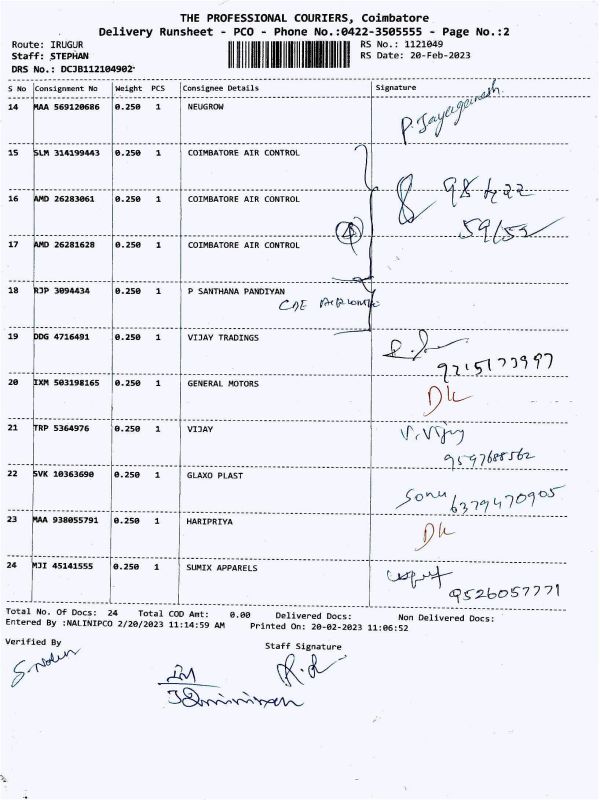 THE PROFESSIONAL COURIERS, Coimbatore
Delivery Runsheet - PCO - Phone No.:0422-3505555 - Page No.:2
Route: IRUGUR RS No.: 1121049
Staff: STEPHAN RS Date: 20-Feb-2023
DRS No.: DCJB112104902
S No Consignment No Weight PCS Consignee Details Signature
14 MAA 569120686 0.250 1 NEUGROW
P. Jayaganesh
15 SLM 314199443 0.250 1 COIMBATORE AIR CONTROL
16 AMD 26283061 0.250 1 COIMBATORE AIR CONTROL
4
17 AMD 26281628 0.250 1 COIMBATORE AIR CONTROL
18 RJP 3094434 0.250 1 P SANTHANA PANDIYAN
19 DDG 4716491 0.250 1 VIJAY TRADINGS
9215173997
20 IXM 503198165 0.250 1 GENERAL MOTORS
DL
21 TRP 5364976 0.250 1 VIJAY V. Vijay
9597688562
22 SVK 10363690 0.250 1 GLAXO PLAST
Sonu 6379470905
23 MAA 938055791 0.250 1 HARIPRIYA
DL
24 MJI 45141555 0.250 1 SUMIX APPARELS
9526057771
Total No. Of Docs: 24 Total COD Amt: 0.00 Delivered Docs: Non Delivered Docs:
Entered By :NALINIPCO 2/20/2023 11:14:59 AM Printed On: 20-02-2023 11:06:52
Verified By Staff Signature